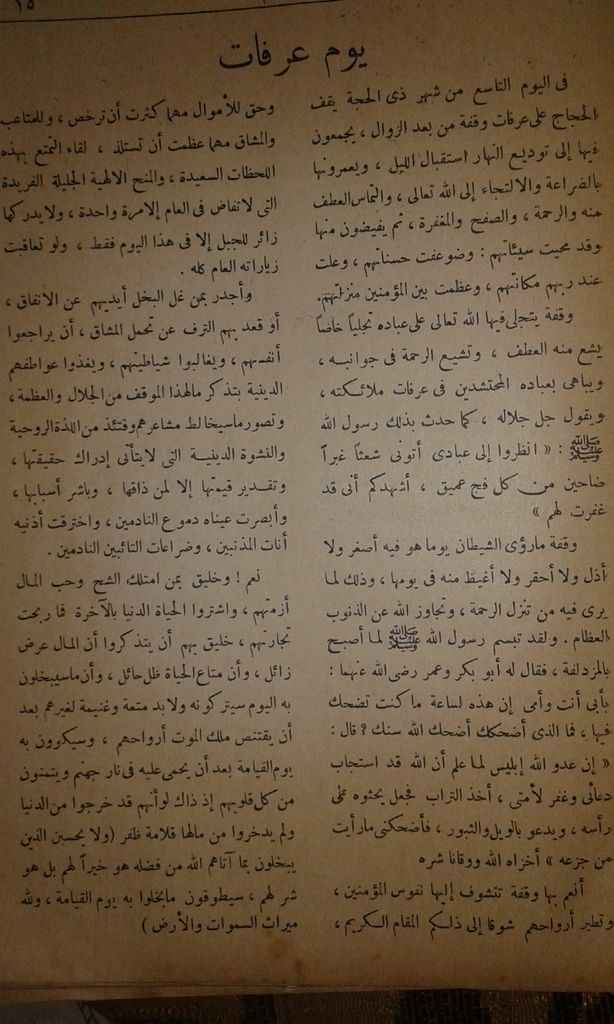 ١٥
يوم عرفات
فى اليوم التاسع من شهر ذى الحجة يقف
الحجاج على عرفات وقفة من بعد الزوال ، يجمعون
فيها إلى توديع النهار استقبال الليل ، ويعمرونها
بالضراعة والالتجاء إلى الله تعالى ، والتماس العطف
منه والرحمة ، والصفح والمغفرة ، ثم يفيضون منها
وقد محيت سيئاتهم : وضوعفت حسناتهم ، وعلت
عند ربهم مكانتهم ، وعظمت بين المؤمنين منزلتهم.
وقفة يتجلى فيها الله تعالى على عباده تجلياً خاصاً
يشع منه العطف ، وتشيع الرحمة فى جوانبه ،
ويباهى بعباده المحتشدين فى عرفات ملائكته ،
ويقول جل جلاله ، كما حدث بذلك رسول الله
ﷺ : « انظروا إلى عبادى أتونى شعثاً غبراً
ضاحين من كل فج عميق ، أشهدكم أنى قد
غفرت لهم »
وقفة مارؤى الشيطان يوما هو فيه أصغر ولا
أذل ولا أحقر ولا أغيظ منه فى يومها ، وذلك لما
يرى فيه من تنزل الرحمة ، وتجاوز الله عن الذنوب
العظام . ولقد تبسم رسول الله ﷺ لما أصبح
بالمزدلفة ، فقال له أبو بكر وعمر رضى الله عنهما :
بأبى أنت وأمى إن هذه لساعة ما كنت تضحك
فيها ، فما الذى أضحكك أضحك الله سنك ؟ قال :
« إن عدو الله إبليس لما علم أن الله قد استجاب
دعائى وغفر لأمتى ، أخذ التراب فجعل يحثوه على
رأسه ، ويدعو بالويل والثبور ، فأضحكنى مارأيت
من جزعه » أخزاه الله ووقانا شره
أنعم بها وقفة تتشوف إليها نفوس المؤمنين ،
وتطير أرواحهم شوقا إلى ذلكم المقام الكريم ،
وحق للأموال مهما كثرت أن ترخص ، وللمتاعب
والمشاق مهما عظمت أن تستلذ ، لقاء التمتع بهذه
اللحظات السعيدة ، والمنح الالهية الجليلة الفريدة
التى لا تفاض فى العام إلا مرة واحدة ، ولا يدركها
زائر للجبل إلا فى هذا اليوم فقط ، ولو تعاقبت
زياراته العام كله .
وأجدر بمن غل البخل أيديهم عن الانفاق ،
أو قعد بهم الترف عن تحمل المشاق ، أن يراجعوا
أنفسهم ، ويغالبوا شياطينهم ، ويغذوا عواطفهم
الدينية بتذكر مالهذا الموقف من الجلال والعظمة ،
وتصور ماسيخالط مشاعرهم وقتئذ من اللذة الروحية
والنشوة الدينية التى لا يتأتى إدراك حقيقتها ،
وتقدير قيمتها إلا لمن ذاقها ، وباشر أسبابها ،
وأبصرت عيناه دموع النادمين ، واخترقت أذنيه
أنات المذنبين ، وضراعات التائبين النادمين .
نعم ! وخليق بمن امتلك الشح وحب المال
أزمتهم ، واشتروا الحياة الدنيا بالآخرة فما ربحت
تجارتهم ، خليق بهم أن يتذكروا أن المال عرض
زائل ، وأن متاع الحياة ظل حائل ، وأن ماسيبخلون
به اليوم سيتركونه ولا بد متعة وغنيمة لغيرهم بعد
أن يقتنص ملك الموت أرواحهم ، وسيكوون به
يوم القيامة بعد أن يحمى عليه فى نار جهنم ويتمنون
من كل قلوبهم إذ ذاك لو أنهم قد خرجوا من الدنيا
ولم يدخروا من مالها قلامة ظفر (ولا يحسبن الذين
يبخلون بما آتاهم الله من فضله هو خيراً لهم بل هو
شر لهم ، سيطوقون مابخلوا به يوم القيامة ، ولله
ميراث السموات والأرض )